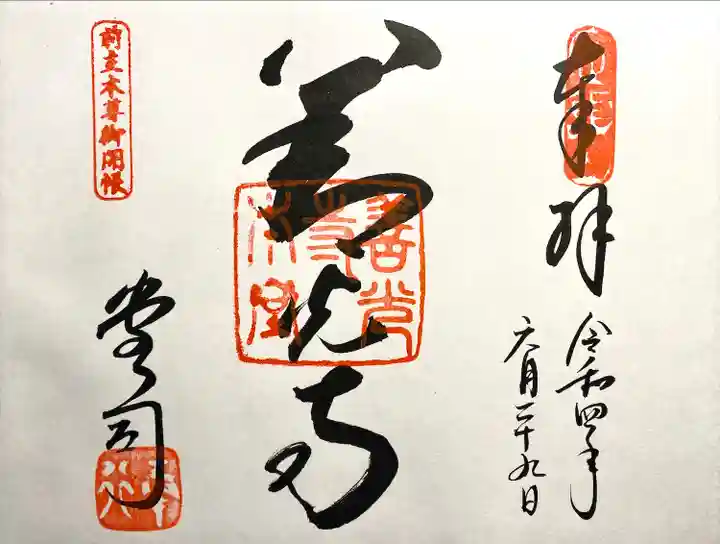 奉拝
令和四年
六月二十九日
善光寺
前立本尊御開帳
堂司